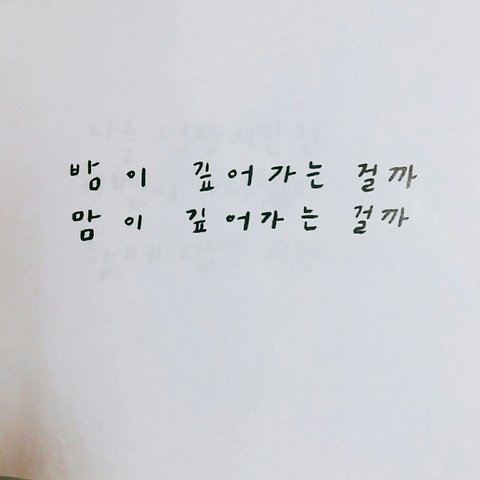 밤이 깊어가는 걸까
맘이 깊어가는 걸까